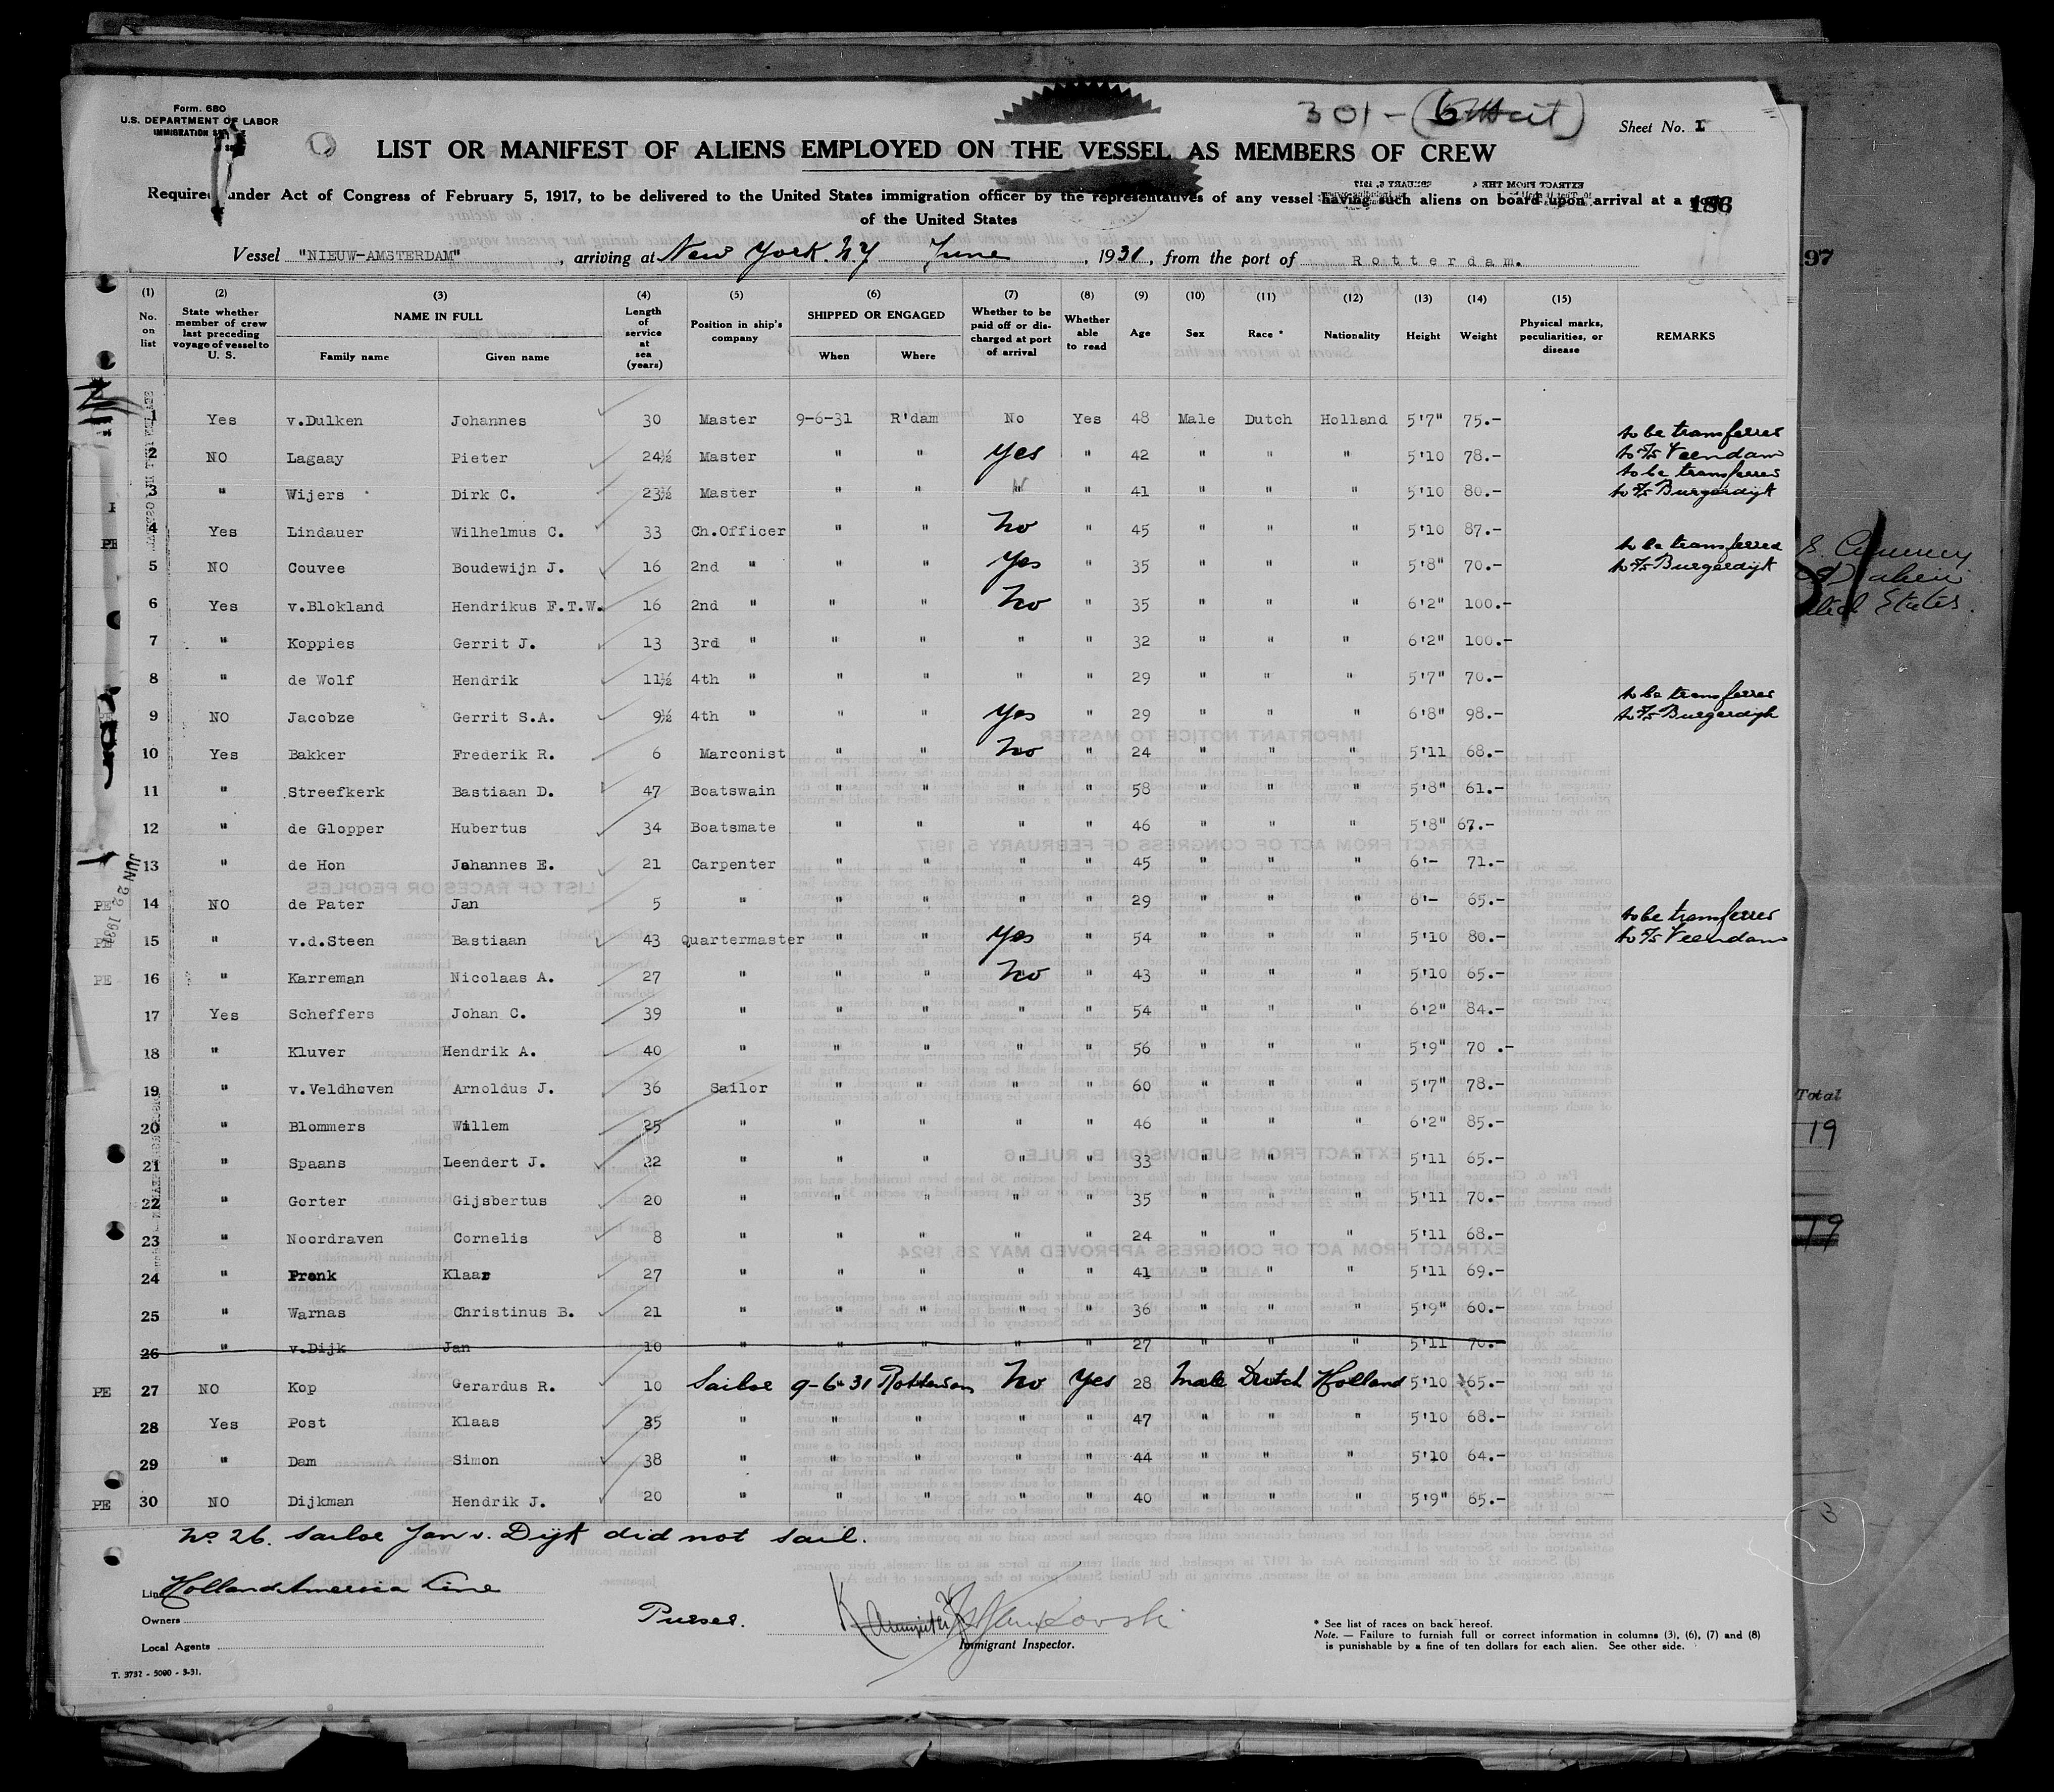 Form. 680
U.S. DEPARTMENT OF LABOR
IMMIGRATION
301 -
Sheet No. I
LIST OR MANIFEST OF ALIENS EMPLOYED ON THE VESSEL AS MEMBERS OF CREW
Required under Act of Congress of February 5, 1917, to be delivered to the United States immigration officer by the representatives of any vessel having such aliens on board upon arrival at a port
186
of the United States
Vessel "NIEUW-AMSTERDAM", arriving at New York. N.Y June, 1931, from the port of Rotterdam.
97
(1) (2) (3) (4) (5) (6) (7) (8) (9) (10) (11) (12) (13) (14) (15)
No. on list State whether member of crew last preceding voyage of vessel to U. S. NAME IN FULL Family name Given name Length of service at sea (years) Position in ship's company SHIPPED OR ENGAGED When Where Whether to be paid off or discharged at port of arrival Whether able to read Age Sex Race * Nationality Height Weight Physical marks, peculiarities, or disease REMARKS
1 Yes v.Dulken Johannes 30 Master 9-6-31 R'dam No Yes 48 Male Dutch Holland 5'7" 75.-
2 NO Lagaay Pieter 24½ Master " " Yes " 42 " " " 5'10 78.- to be transferred to s/s Veendam
3 " Wijers Dirk C. 23½ Master " " " " 41 " " " 5'10 80.- to be transferred to s/s Burgerdijk
4 Yes Lindauer Wilhelmus C. 33 Ch.Officer " " No " 45 " " " 5'10 87.-
5 NO Couvee Boudewijn J. 16 2nd " " " Yes " 35 " " " 5'8" 70.- to be transferred to s/s Burgerdijk
6 Yes v.Blokland Hendrikus F.T.W. 16 2nd " " " No " 35 " " " 6'2" 100.-
7 " Koppies Gerrit J. 13 3rd " " " " " 32 " " " 6'2" 100.-
8 " de Wolf Hendrik 11½ 4th " " " " " 29 " " " 5'7" 70.-
9 NO Jacobze Gerrit S.A. 9½ 4th " " " Yes " 29 " " " 6'8" 98.- to be transferred to s/s Burgerdijk
10 Yes Bakker Frederik R. 6 Marconist " " No " 24 " " " 5'11 68.-
11 " Streefkerk Bastiaan D. 47 Boatswain " " " " 58 " " " 5'8" 61.-
12 " de Glopper Hubertus 34 Boatsmate " " " " 46 " " " 5'8" 67.-
13 " de Hon Johannes E. 21 Carpenter " " " " 45 " " " 6'- 71.-
JUN 22 1931
PE 14 NO de Pater Jan 5 " " " " " 29 " " " 6'- 65.-
PE 15 " v.d.Steen Bastiaan 43 Quartermaster " " Yes " 54 " " " 5'10 80.- to be transferred to s/s Veendam
PE 16 " Karreman Nicolaas A. 27 " " " No " 43 " " " 5'10 65.-
17 Yes Scheffers Johan C. 39 " " " " " 54 " " " 6'2" 84.-
18 " Kluver Hendrik A. 40 " " " " " 56 " " " 5'9" 70 .-
19 " v.Veldhoven Arnoldus J. 36 Sailor " " " " 60 " " " 5'7" 78.-
20 " Blommers Willem 25 " " " " " 46 " " " 6'2" 85.-
21 " Spaans Leendert J. 22 " " " " " 33 " " " 5'11 65.-
22 " Gorter Gijsbertus 20 " " " " " 35 " " " 5'11 70.-
23 " Noordraven Cornelis 8 " " " " " 24 " " " 5'11 68.-
24 " Pronk Klaar 27 " " " " " 41 " " " 5'11 69.-
25 " Warnas Christinus B. 21 " " " " " 36 " " " 5'9" 60.-
26 " v.Dijk Jan 10 " " " " " 27 " " " 5'11 70.-
PE 27 NO Kop Gerardus R. 10 Sailor 9-6-31 Rotterdam No Yes 28 Male Dutch Holland 5'10 65.-
28 Yes Post Klaas 35 " " " " " 47 " " " 5'10 68.-
29 " Dam Simon 38 " " " " " 44 " " " 5'10 64.-
PE 30 NO Dijkman Hendrik J. 20 " " " " " 40 " " " 5'9" 65.-
No 26. Sailor Jan v. Dijk did not sail.
Line Holland America Line
Owners
Local Agents
Purser.
Immigrant Inspector.
* See list of races on back hereof.
Note. — Failure to furnish full or correct information in columns (3), (6), (7) and (8)
is punishable by a fine of ten dollars for each alien. See other side.
T. 3732 - 5000 - 3-31.
States.
Total
19
19
3